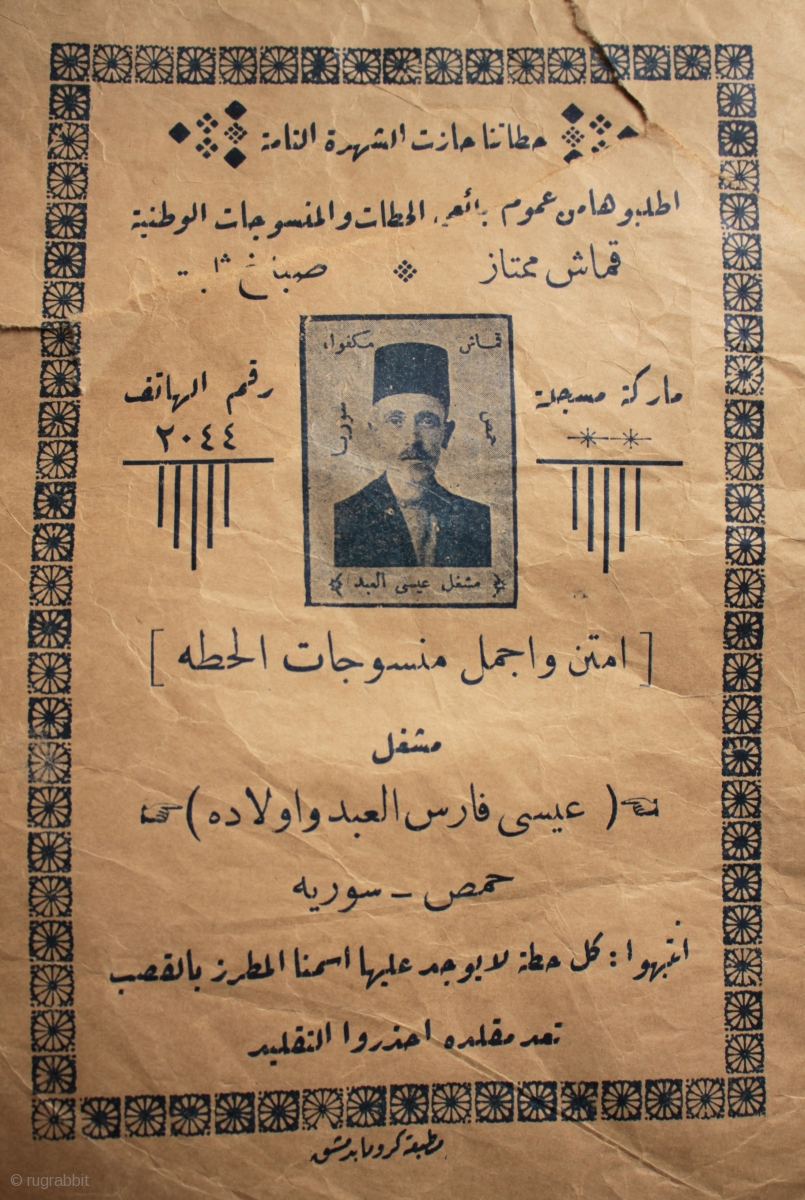 حطاتنا حازت الشهرة التامة
اطلبوها من عموم بائعي الحطات والمنسوجات الوطنية
قماش ممتاز صباغ ثابت
ماركة مسجلة
رقم الهاتف
٢٠٤٤
قماش مكفول
حمص
سوريا
مشغل عيسى العبد
[ امتن واجمل منسوجات الحطه ]
مشغل
( عيسى فارس العبد واولاده )
حمص - سوريه
انتبهوا : كل حطة لا يوجد عليها اسمنا المطرز بالقصب
تعد مقلده احذروا التقليد
مطبعة كروما بدمشق
© rugrabbit